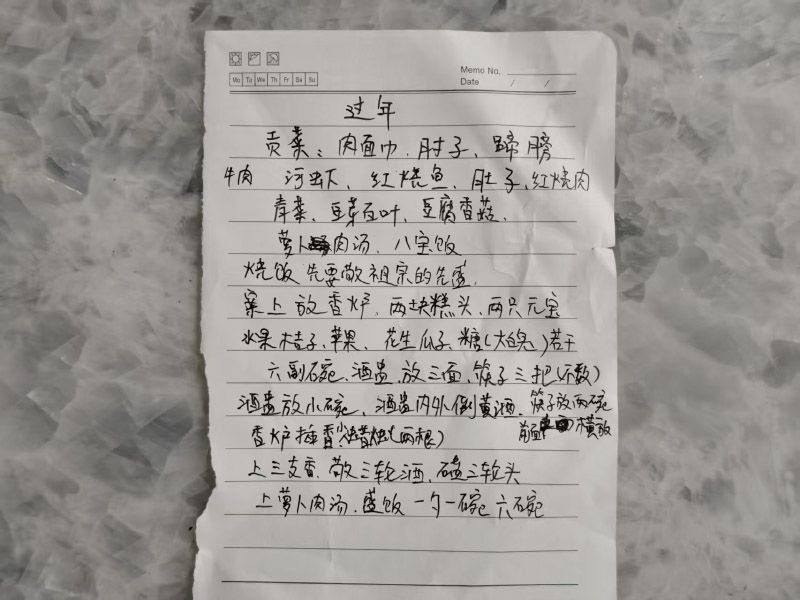 Mo Tu We Th Fr Sa Su
Memo No.
Date / /
过年
贡菜：肉面巾、肘子、蹄膀
牛肉 河虾、红烧鱼、肚子、红烧肉
青菜、豆芽百叶、豆腐香菇、
萝卜肉汤、八宝饭
烧饭 先要敬祖宗的先盛
案上放香炉、两块糕头、两只元宝
水果桔子、苹果、花生瓜子、糖(大白兔)若干
六副碗、酒盅放三面、筷子三把(不数)
酒盅放小碗、酒盅内外倒黄酒、筷子放两碗
前面 横放
香炉插香 蜡烛(两根)
上三支香、敬三轮酒、磕三轮头
上萝卜肉汤、盛饭一勺一碗 六碗